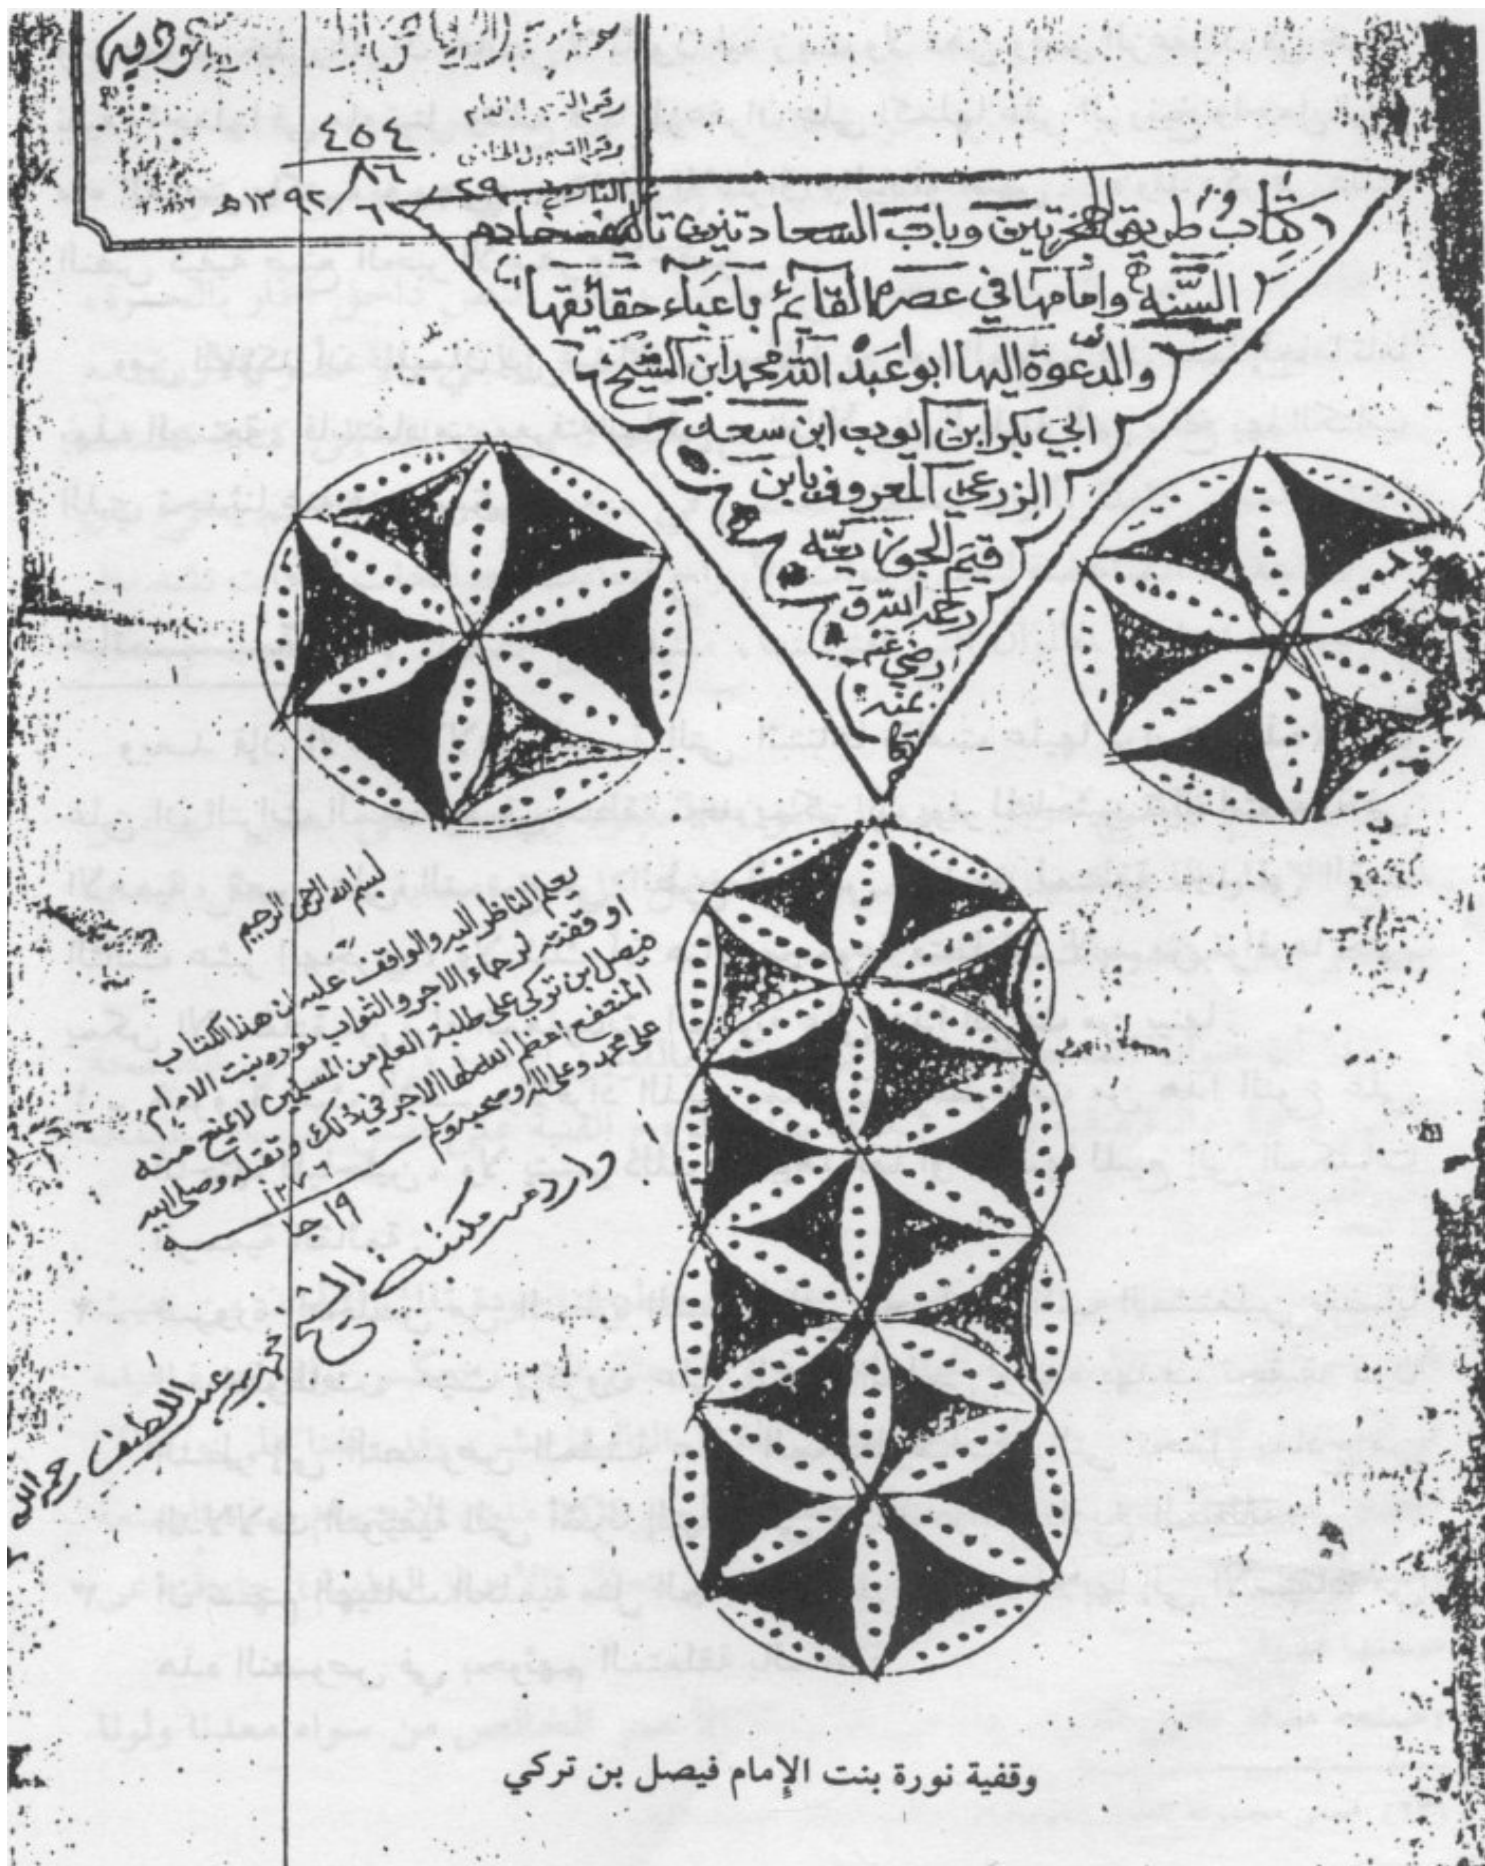 رقم التسجيل العام
٤٥٤
رقم التسجيل الخاص
٨٦
التاريخ ٢٩ / ٦ / ١٣٩٢هـ
كتاب طريق الهجرتين وباب السعادتين تاليف خادم
السنه وامامها في عصره القائم باعباء حقائقها
والدعوة اليها ابو عبد الله محمد ابن الشيخ
ابي بكر ابن ايوب ابن سعد
الزرعي المعروف بابن
قيم الجوزيه
رحمه الله
ورضي
عنه
بسم الله الرحمن الرحيم
يعلم الناظر اليه والواقف عليه ان هذا الكتاب
اوقفته لرجاء الاجر والثواب نوره بنت الامام
فيصل ابن تركي على طلبة العلم من المسلمين لا يمنع منه
المنتفع اعظم الله لها الاجر في ذلك وتقبله وصلى الله
على محمد وعلى اله وصحبه وسلم
١٩ جا ١٢٧٦
وارد من مكتبة الشيخ محمد بن عبد اللطيف رحمه الله
وقفية نورة بنت الإمام فيصل بن تركي